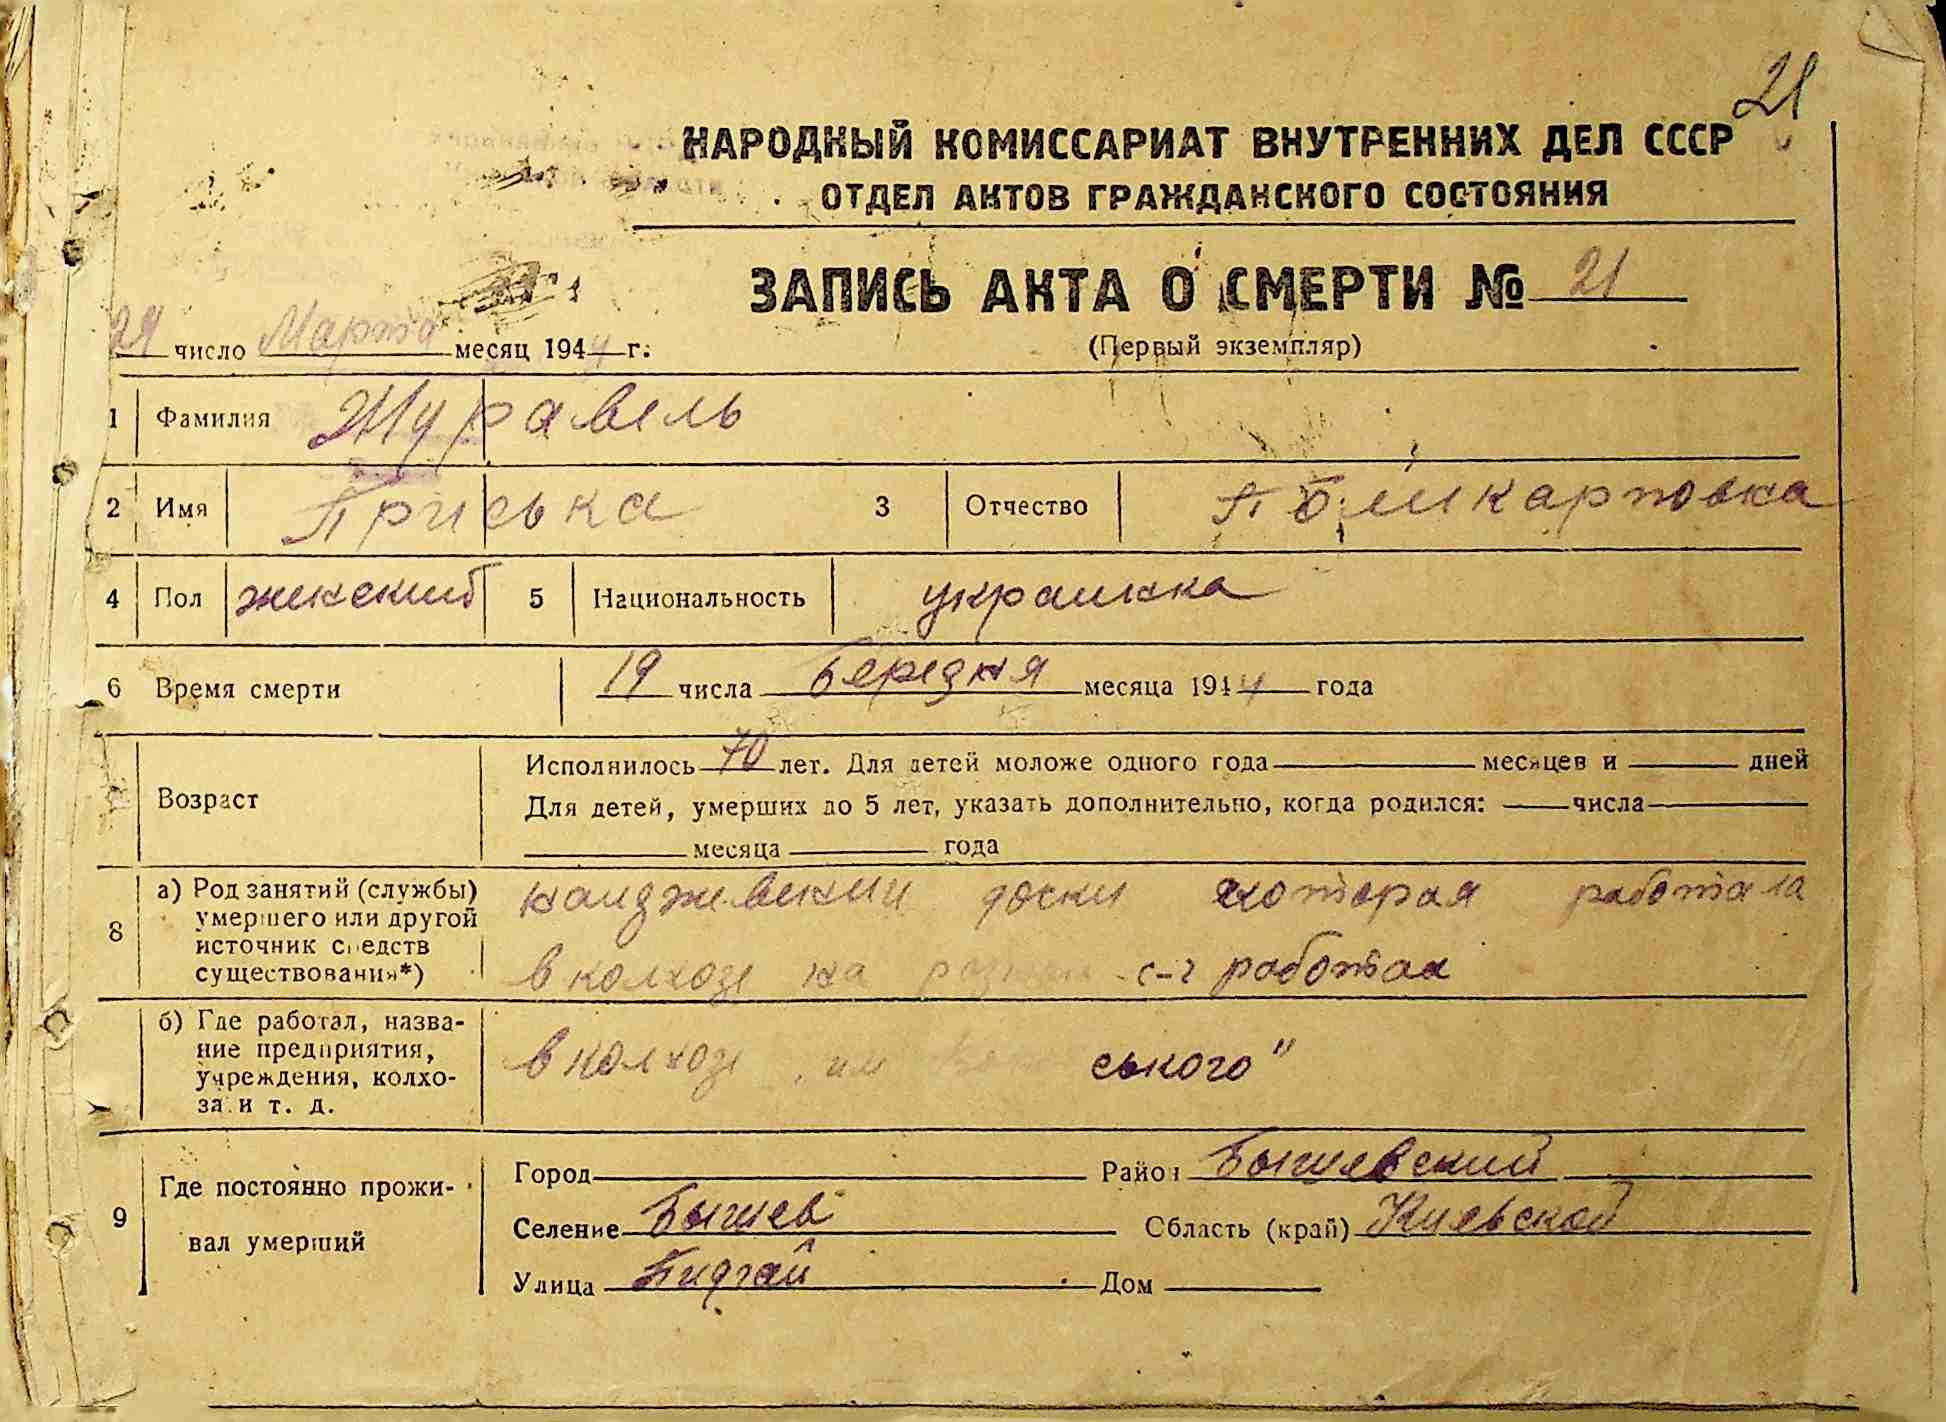 21
НАРОДНЫЙ КОМИССАРИАТ ВНУТРЕННИХ ДЕЛ СССР
ОТДЕЛ АКТОВ ГРАЖДАНСКОГО СОСТОЯНИЯ
ЗАПИСЬ АКТА О СМЕРТИ № 21
(Первый экземпляр)
число Марта месяц 1944 г.
1 Фамилия Журавель
2 Имя Приська 3 Отчество
4 Пол 5 Национальность украинка
6 Время смерти 19 числа березня месяца 1944 года
Возраст
Исполнилось 70 лет. Для детей моложе одного года месяцев и дней
Для детей, умерших до 5 лет, указать дополнительно, когда родился: числа
месяца года
8 а) Род занятий (службы) умершего или другой источник средств существования*)
которая работала
в колхозе на с-г работах
б) Где работал, название предприятия, учреждения, колхоза и т. д.
в колхозе ського"
9 Где постоянно проживал умерший
Город Район Бышевский
Селение Бышев Область (край) Киевской
Улица Пидгай Дом